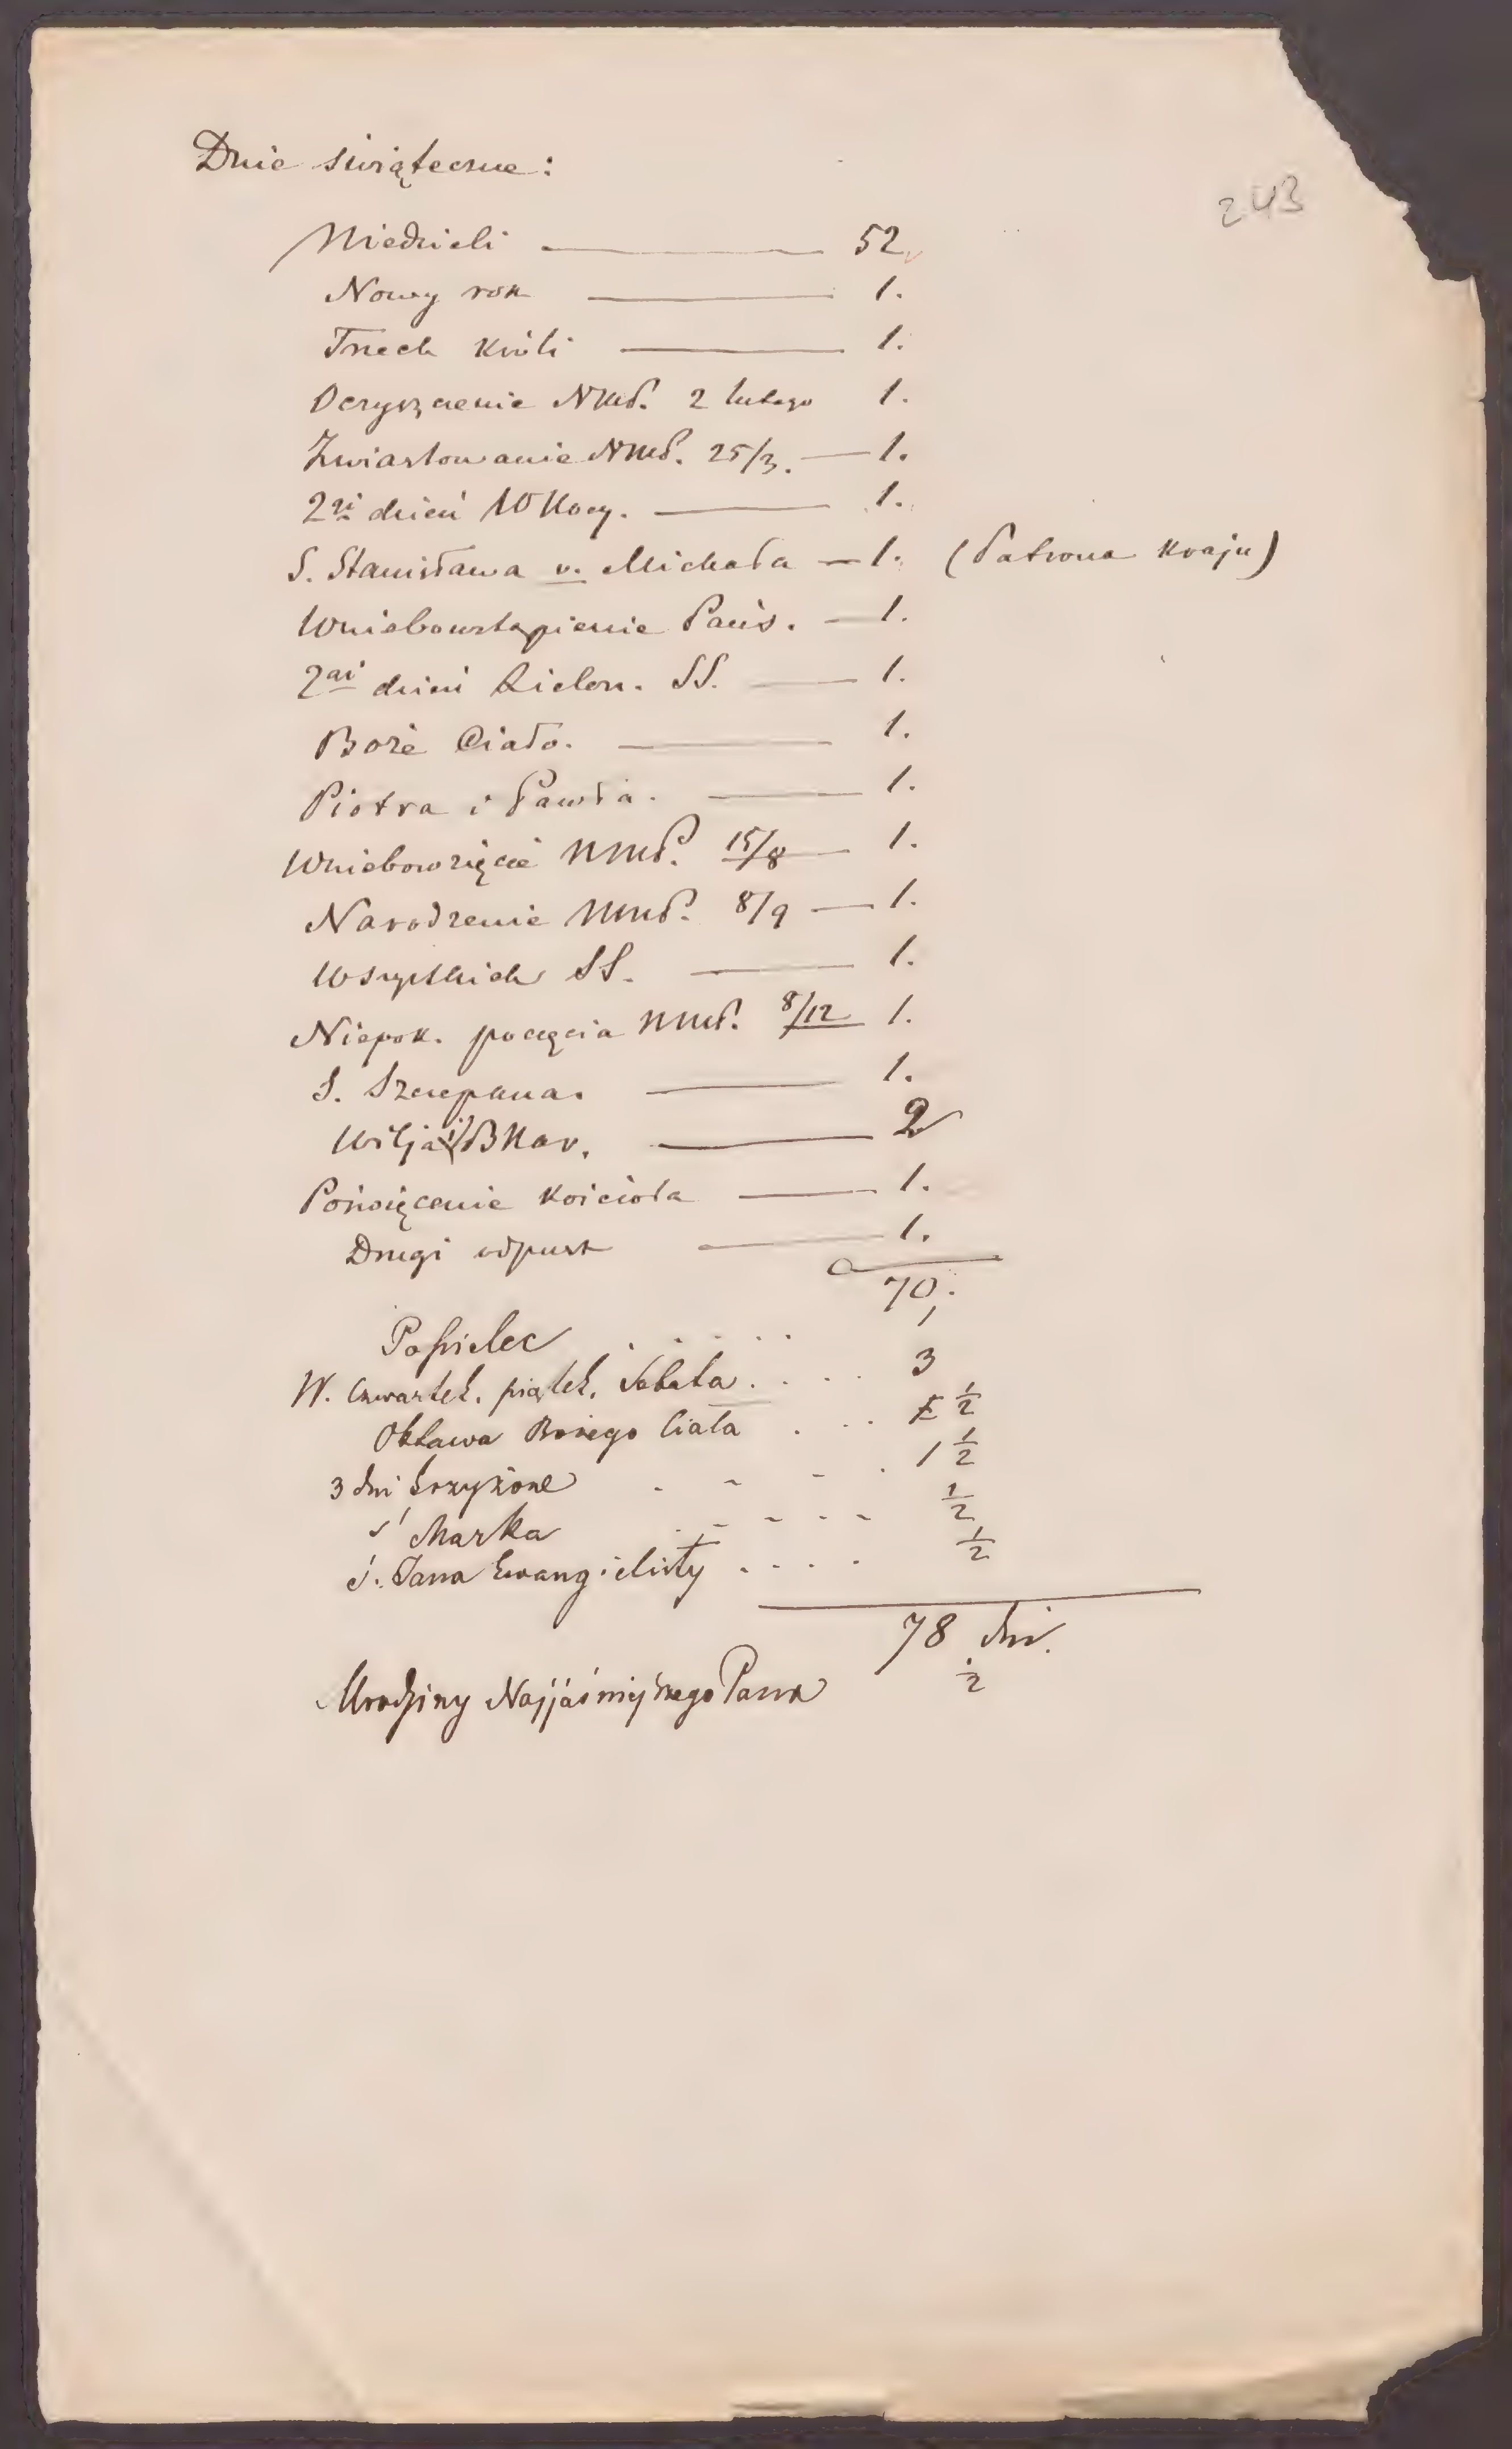 243
Dnie świąteczne:
Niedzieli — 52
Nowy rok — 1.
Trzech Króli — 1.
Oczyszczenie NMP. 2 lutego 1.
Zwiastowanie NMP. 25/3. — 1.
2gi dzień WNocy. — 1.
S. Stanisława v. Michała — 1. (Patrona Kraju)
Wniebowstąpienie Pańs. — 1.
2gi dzień Zielon. SS. — 1.
Boże Ciało. — 1.
Piotra i Pawła. — 1.
Wniebowzięcie NMP. 15/8 — 1.
Narodzenie NMP. 8/9 — 1.
Wszystkich SS. — 1.
Niepok. poczęcia NMP. 8/12 1.
S. Szczepana. — 1.
Wilja i BNar. — 2
Poświęcenie Kościoła — 1.
Drugi odpust — 1.
70.
Popielec . . . .
W. Czwartek, piątek, Sobota . . . . 3
Oktawa Bożego Ciała . . . ½
3 dni krzyżowe . - - . 1 ½
ś Marka . - - - - ½
ś. Jana Ewangielisty . . . . ½
78 dni.
Urodziny Najjaśniejszego Pana ½